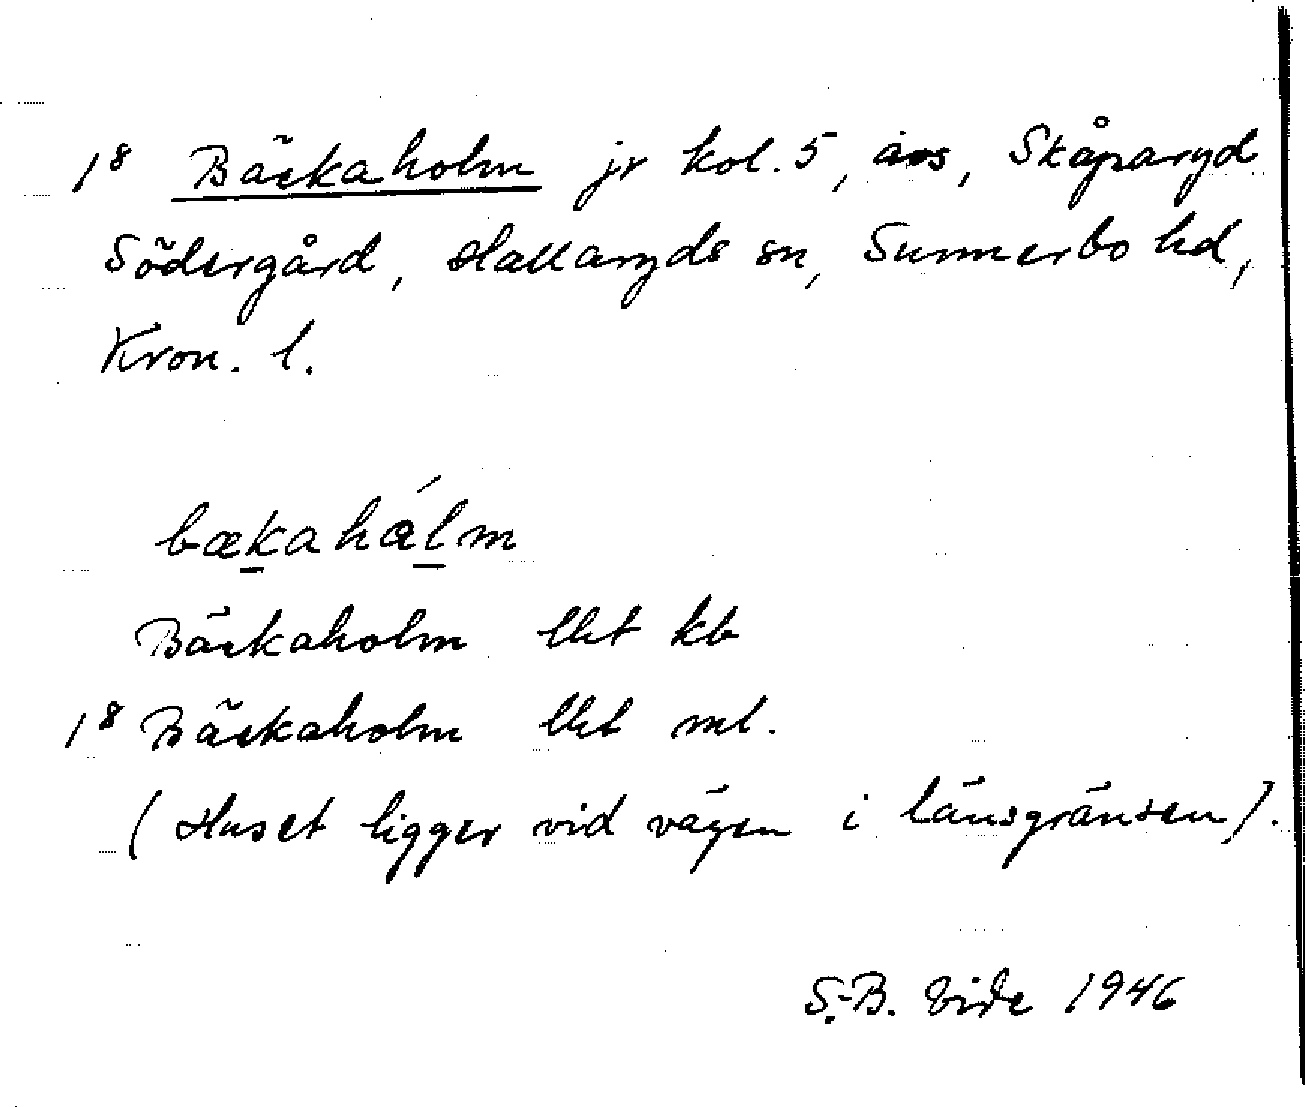 1⁸ Bäckaholm jr kol. 5, avs, Skåparyd
Södergård, Hallaryds sn, Sunnerbo hd,
Kron. l.
bækahálm
Bäckaholm lht kb
1⁸ Bäckaholm lht ml.
(Huset ligger vid vägen i länsgränsen).
S.-B. Vide 1946